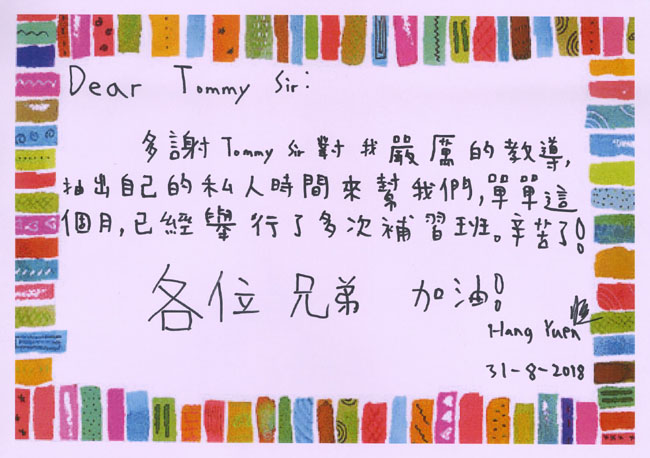 Dear Tommy Sir:
多謝 Tommy Sir 對我嚴厲的教導,
抽出自己的私人時間來幫我們,單單這
個月,已經舉行了多次補習班。辛苦了!
各位兄弟 加油!
Hang Yuen
31-8-2018